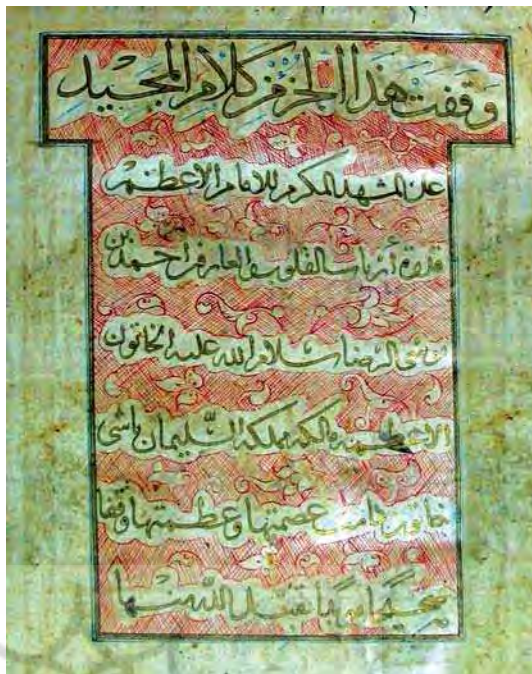 وقفت هذا الجزء من كلام المجيد
على المشهد المكرم للامام الاعظم
قدوة أرباب القلوب والمعارف احمد بن
موسى الرضا سلام الله عليه الخاتون
الاعظمة مالكة مملكة السليمان تاشى
خاتون دامت عصمتها وعظمتها وقفا
صحيحا مؤبدا تقبل الله منها